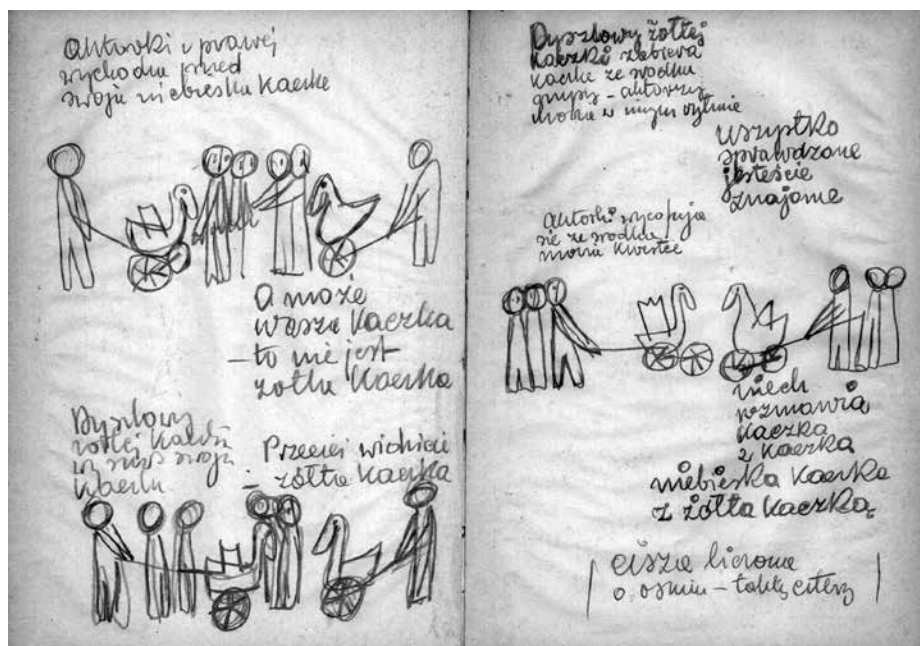 Aktorki z prawej
wychodzą przed
swoją niebieską kaczkę
A może
wasza kaczka
– to nie jest
żółta kaczka
Dyszlowy
żółtej kaczki
swoją
kaczkę
Przecież widzicie
– żółta kaczka
Dyszlowy żółtej
kaczki zabiera
kaczkę ze środka
grupy – aktorzy
w innym rytmie
wszystko
sprawdzone
jesteście
znajome
aktorki wycofują
się ze środka
mówią kwestie
niech
rozmawia
kaczka
z kaczką
niebieska kaczka
z żółtą kaczką
cisza liczona
o ośmiu – takty cztery